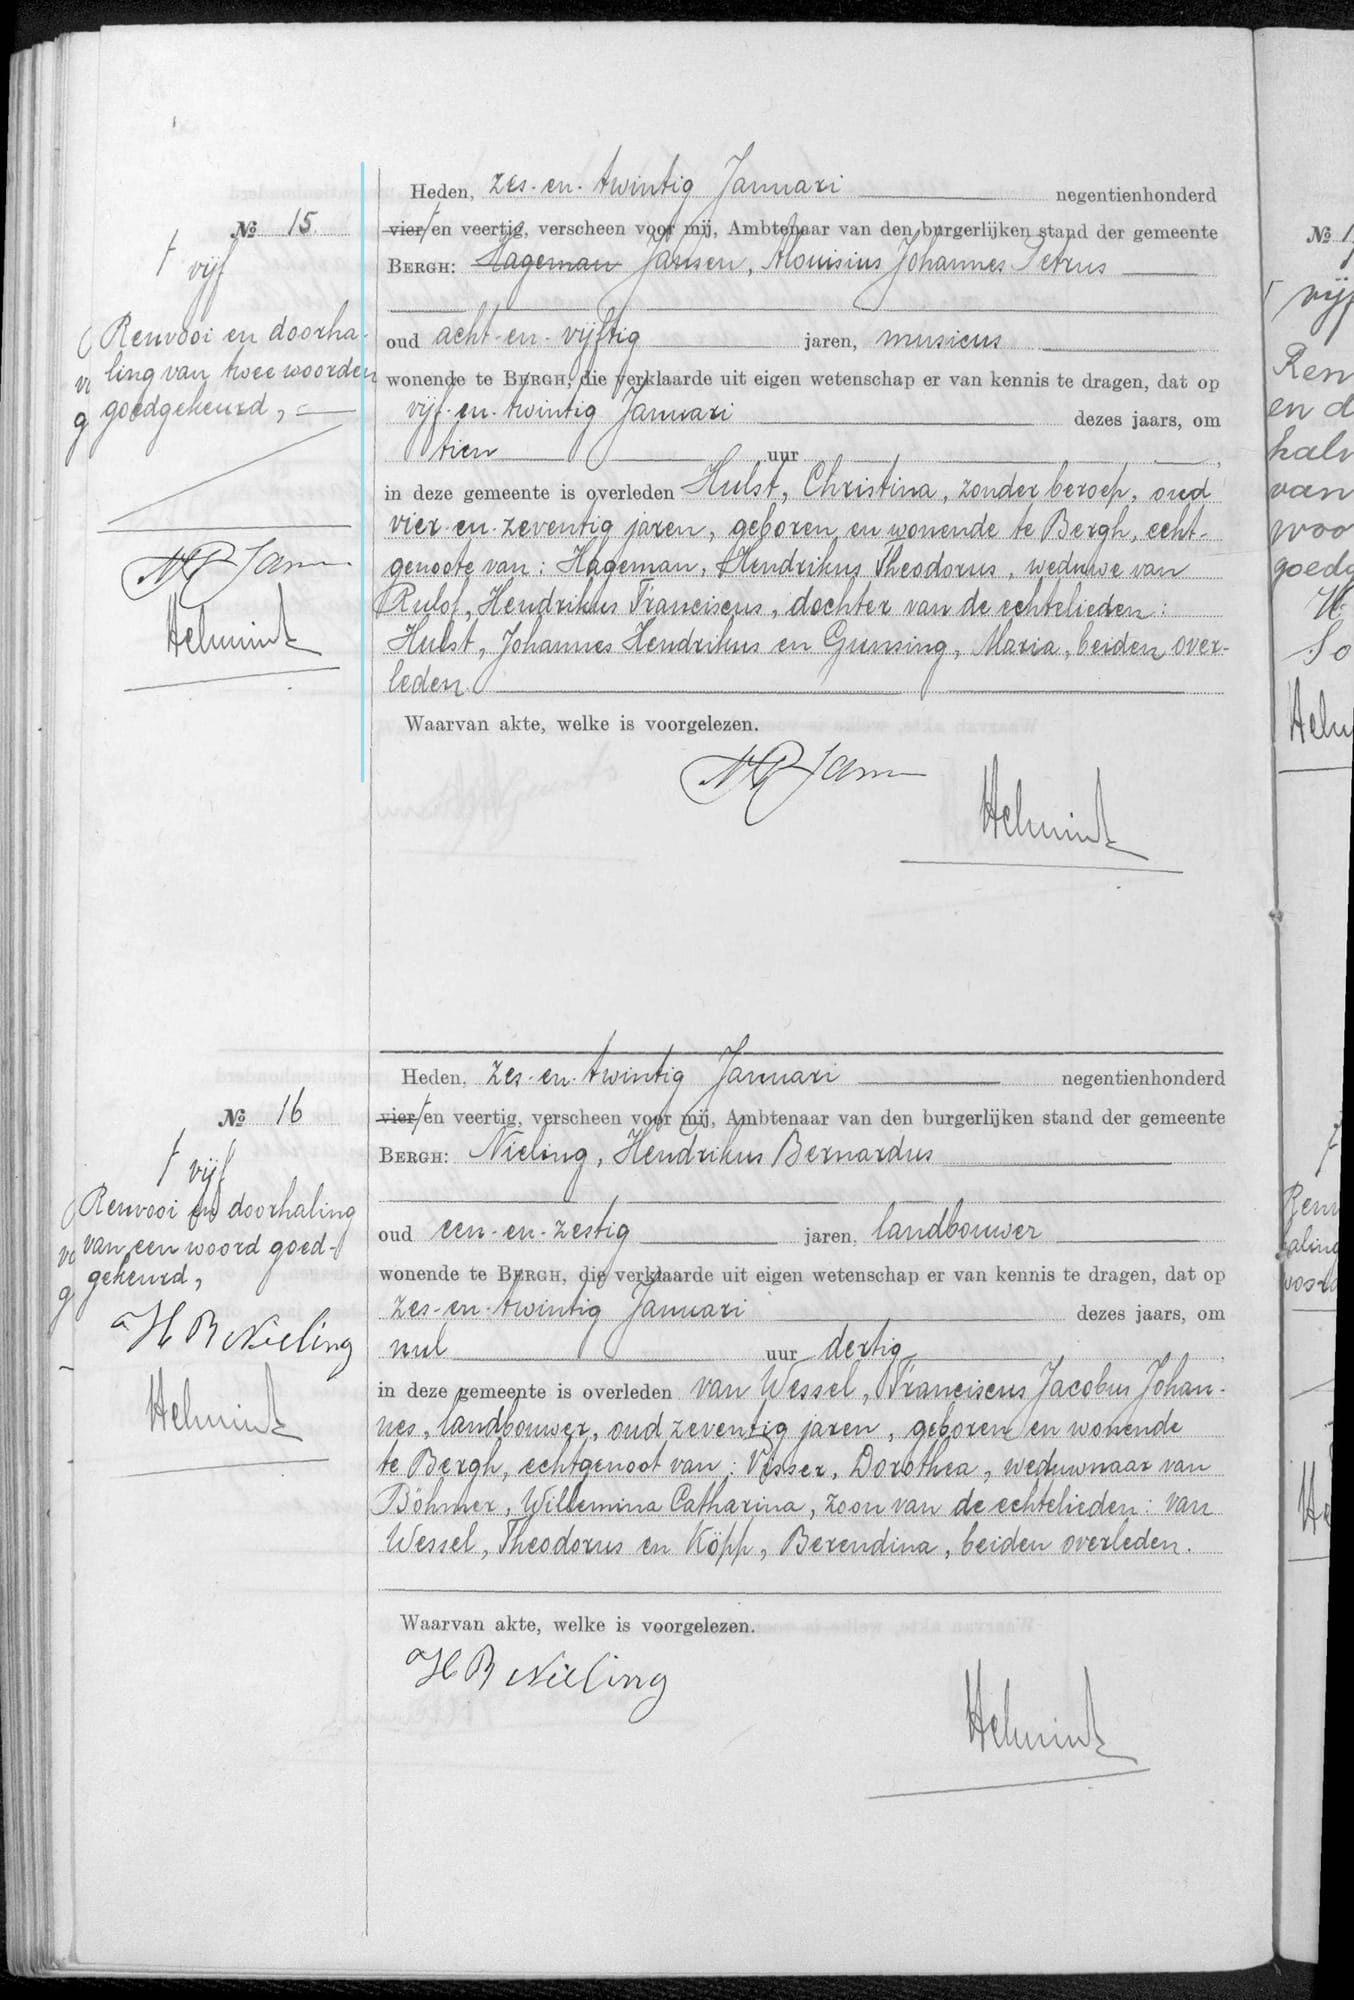 № 15.
Heden, zes-en-twintig Januari negentienhonderd
vier en veertig, verscheen voor mij, Ambtenaar van den burgerlijken stand der gemeente
BERGH: Hageman Jansen, Alouisius Johannes Petrus
oud acht-en-vijftig jaren, musicus
wonende te BERGH, die verklaarde uit eigen wetenschap er van kennis te dragen, dat op
vijf-en-twintig Januari dezes jaars, om
tien uur ,
in deze gemeente is overleden Hulst, Christina, zonder beroep, oud
vier-en-zeventig jaren, geboren en wonende te Bergh, echt-
genoote van: Hageman, Hendrikus Theodorus, weduwe van
Rulof, Hendrikus Franciscus, dochter van de echtelieden:
Hulst, Johannes Hendrikus en Gunsing, Maria, beiden over-
leden.
Waarvan akte, welke is voorgelezen.
Helmink
vijf
Renvooi en doorha-
ling van twee woorden
goedgekeurd,
Helmink
№ 16
Heden, zes-en-twintig Januari negentienhonderd
vier en veertig, verscheen voor mij, Ambtenaar van den burgerlijken stand der gemeente
BERGH: Nieling, Hendrikus Bernardus
oud een-en-zestig jaren, landbouwer
wonende te BERGH, die verklaarde uit eigen wetenschap er van kennis te dragen, dat op
zes-en-twintig Januari dezes jaars, om
nul uur dertig ,
in deze gemeente is overleden van Wessel, Franciscus Jacobus Johan-
nes, landbouwer, oud zeventig jaren, geboren en wonende
te Bergh, echtgenoot van: Visser, Dorothea, weduwnaar van
Böhmer, Willemina Catharina, zoon van de echtelieden: van
Wessel, Theodorus en Köpp, Berendina, beiden overleden.
Waarvan akte, welke is voorgelezen.
H B Nieling
Helmink
vijf
Renvooi en doorhaling
van een woord goed-
gekeurd,
H B Nieling
Helmink
№ 1
vijf
Ren
en d
halv
van
woo
goedg
Helm